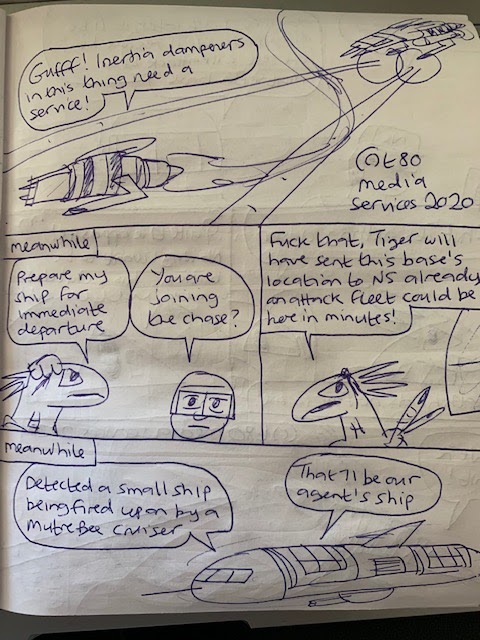 Gufff! Inertia dampeners
in this thing need a
service!
@t80
media
services 2020
meanwhile
Prepare my
ship for
immediate
departure
You are
joining
the chase?
Fuck that, Tiger will
have sent this base's
location to NS already
an attack fleet could be
here in minutes!
meanwhile
Detected a small ship
being fired upon by a
cruiser
That'll be our
agent's ship